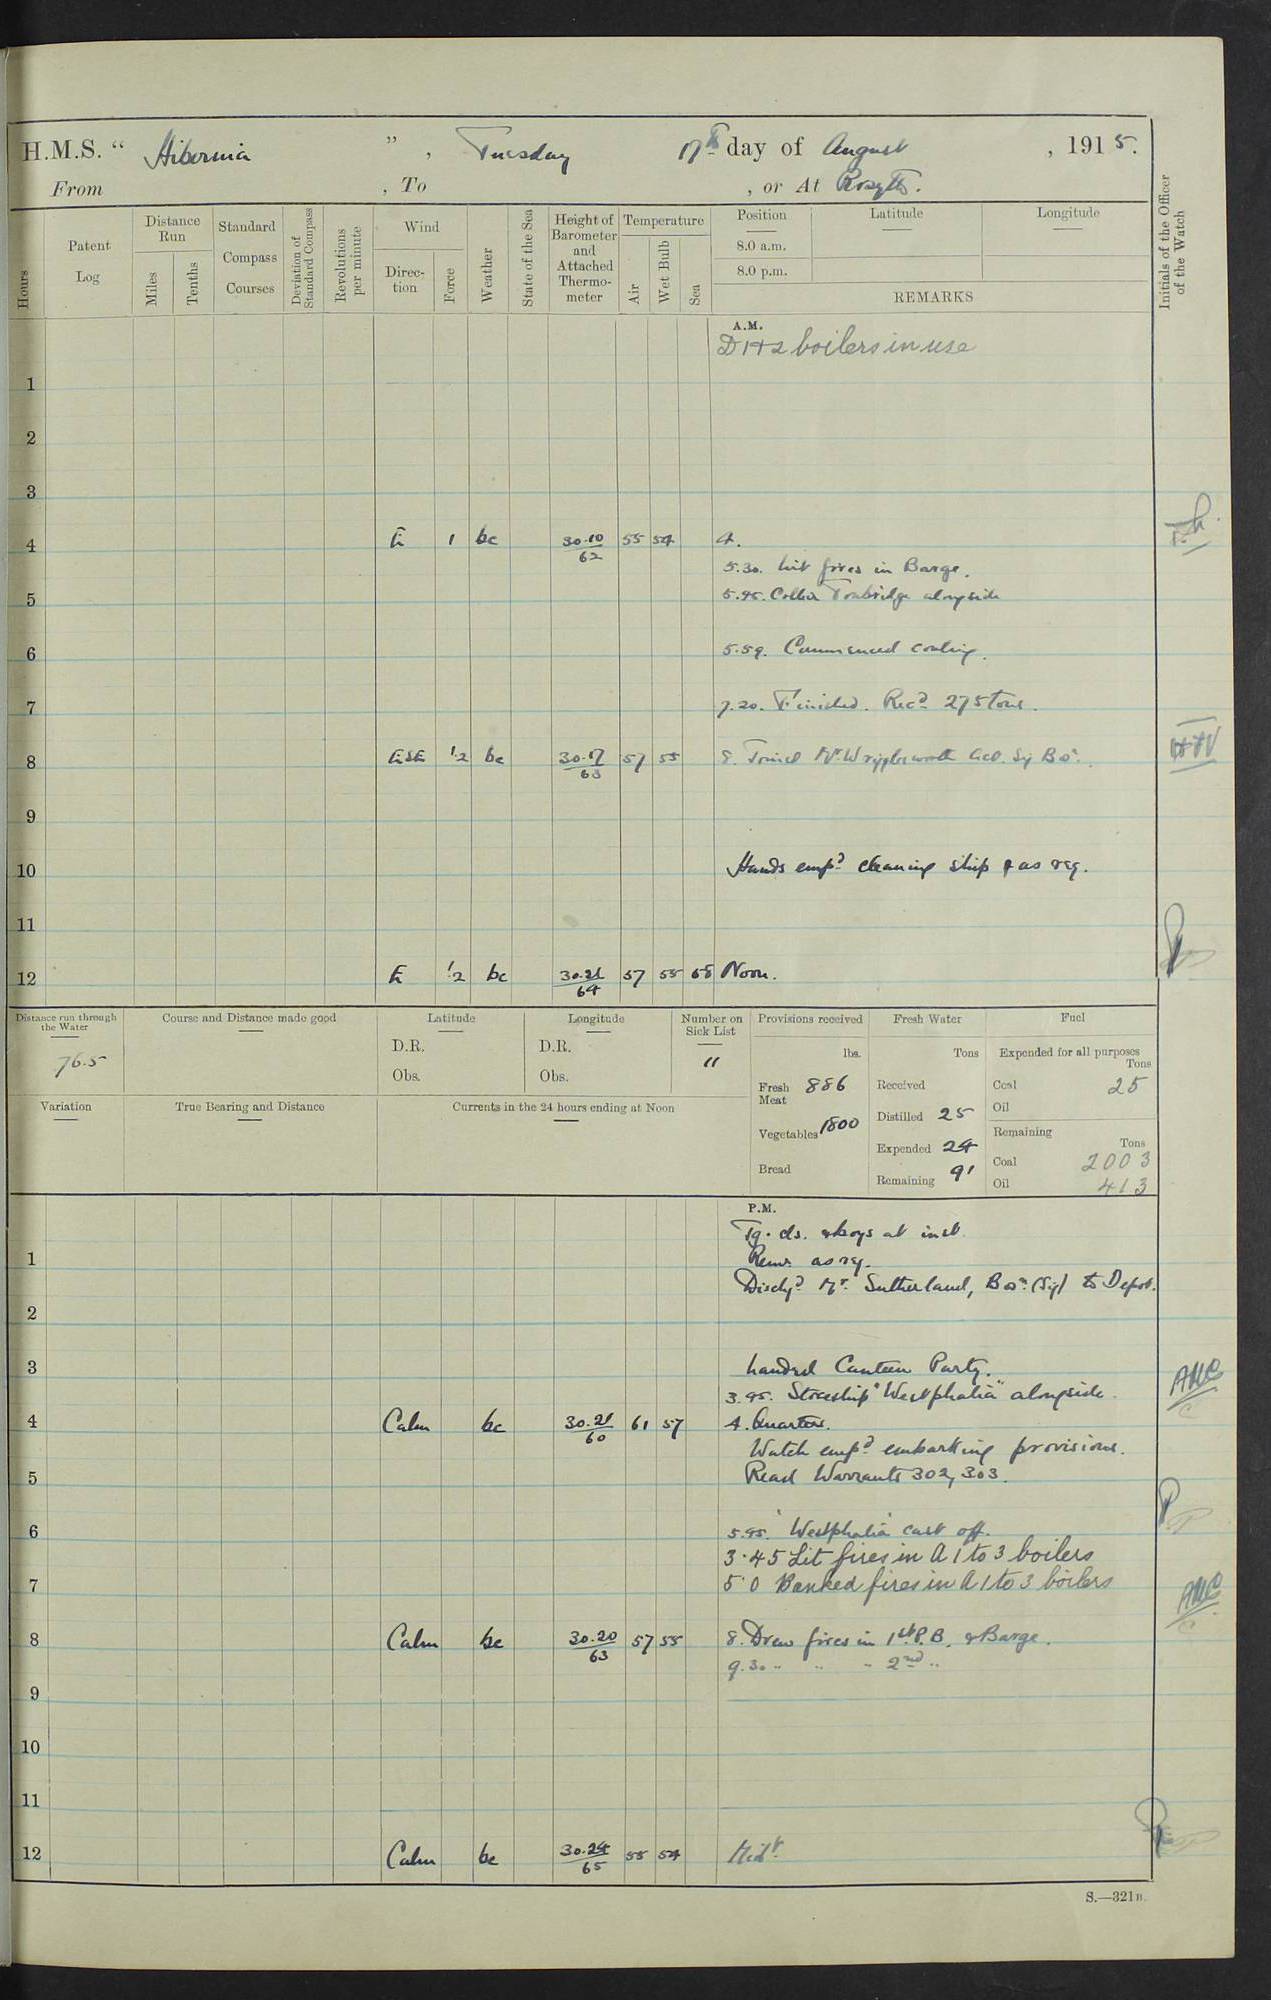 H.M.S. “ Hibernia ” , Tuesday 17th day of August , 1915.
From , To , or At Rosyth.
Hours
Patent Log
Distance Run
Miles
Tenths
Standard Compass Courses
Deviation of Standard Compass
Revolutions per minute
Wind
Direc-tion
Force
Weather
State of the Sea
Height of Barometer and Attached Thermo-meter
Temperature
Air
Wet Bulb
Sea
Position
8.0 a.m.
8.0 p.m.
Latitude
Longitude
REMARKS
Initials of the Officer of the Watch
A.M.
D 1+2 boilers in use
1
2
3
4 E 1 bc 30.10 62 55 54 4.
5.30. Lit fires in Barge.
5 5.45. Collier Tonbridge alongside
6 5.59. Commenced coaling.
7 7.20. Finished. Recd 275 tons.
8 ESE 1.2 bc 30.17 63 57 55 8. Joined Mr Wrigglesworth Act. Sig Bosn.
9
10 Hands empd cleaning ship & as req.
11
12 E 1.2 bc 30.21 64 57 55 58 Noon.
Distance run through the Water
76.5
Course and Distance made good
Latitude
D.R.
Obs.
Longitude
D.R.
Obs.
Number on Sick List
11
Provisions received
lbs.
Fresh Meat 886
Vegetables 1800
Bread
Fresh Water
Tons
Received
Distilled 25
Expended 24
Remaining 91
Fuel
Expended for all purposes
Tons
Coal 25
Oil
Remaining
Tons
Coal 2003
Oil 413
Variation
True Bearing and Distance
Currents in the 24 hours ending at Noon
P.M.
Tg. cls. & boys at inst.
1 Remr. as req.
Dischd Mr. Sutherland, Bosn (Sig) to Depot.
2
3 Landed Canteen Party.
3.45. Storeship "Westphalia" alongside.
4 Calm bc 30.21 60 61 57 4. Quarters.
Watch empd embarking provisions.
5 Read Warrants 302, 303.
6 5.45. "Westphalia" cast off.
3.45 Lit fires in A 1 to 3 boilers
7 5.0 Banked fires in A 1 to 3 boilers
8 Calm bc 30.20 63 57 55 8. Drew fires in 1st P.B. & Barge.
9.30 " " " 2nd "
9
10
11
12 Calm bc 30.24 65 55 54 Midt.
S.—321B.